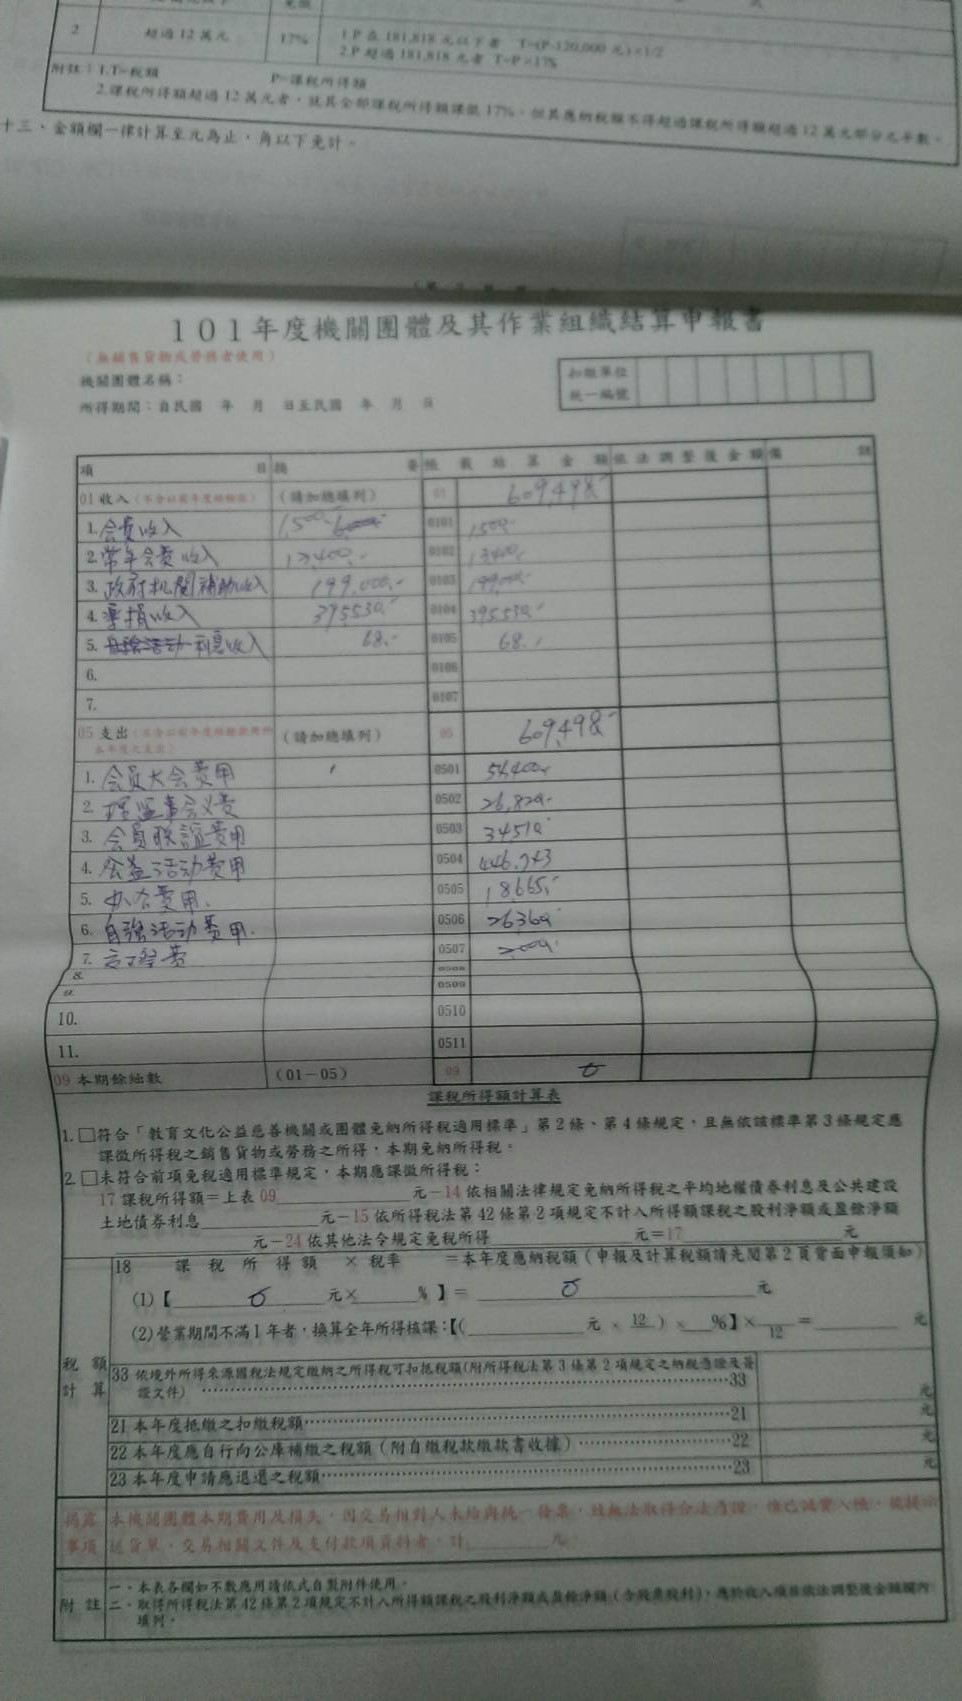 2 超過12萬元 17% 1.P在181,818元以下者 T=(P-120,000元)×1/2
2.P超過181,818元者 T=P×17%
附註：1.T=稅額 P=課稅所得額
2.課稅所得額超過12萬元者，就其全部課稅所得額課徵17%，但其應納稅額不得超過課稅所得額超過12萬元部分之半數。
十三、金額欄一律計算至元為止，角以下免計。
101年度機關團體及其作業組織結算申報書
（無銷售貨物或勞務者使用）
機關團體名稱：
扣繳單位
統一編號
所得期間：自民國 年 月 日至民國 年 月 日
項 目 摘 要 帳載結算金額 依法調整後金額 備 註
01 收入（不含以前年度結餘款） （請加總填列） 01 609,498.-
1. 会費收入 1,500.- 0101 1,500.-
2. 常年会費收入 13,400.- 0102 13,400.-
3. 政府机関補助收入 199,000.- 0103 199,000.-
4. 樂捐收入 395,530.- 0104 395,530.-
5. 自強活动 利息收入 68.- 0105 68.-
6. 0106
7. 0107
05 支出 （請加總填列） 05 609,498.-
1. 会員大会費用 0501
2. 理監事会义費 0502 26,820.-
3. 会員聯誼費用 0503 34510.-
4. 公益活动費用 0504 446,743
5. 办公費用. 0505 18,665.-
6. 自強活动費用. 0506 26360.-
7. 0507 2,000.-
8. 0508
9. 0509
10. 0510
11. 0511
09 本期餘絀數 （01－05） 09 0
課稅所得額計算表
1.□符合「教育文化公益慈善機關或團體免納所得稅適用標準」第2條、第4條規定，且無依該標準第3條規定應
課徵所得稅之銷售貨物或勞務之所得，本期免納所得稅。
2.□未符合前項免稅適用標準規定，本期應課徵所得稅：
17課稅所得額＝上表09 元－14依相關法律規定免納所得稅之平均地權債券利息及公共建設
土地債券利息 元－15依所得稅法第42條第2項規定不計入所得額課稅之股利淨額或盈餘淨額
元－24依其他法令規定免稅所得 元＝17 元
稅額計算
18 課稅所得額 × 稅率 ＝本年度應納稅額（申報及計算稅額請先閱第2頁背面申報須知）
(1)【 0 元× %】＝ 0 元
(2)營業期間不滿1年者，換算全年所得核課：【( 元 × 12 ) × %】× 12 ＝ 元
33 依境外所得來源國稅法規定繳納之所得稅可扣抵稅額(附所得稅法第3條第2項規定之納稅憑證及簽
證文件)……33 元
21 本年度抵繳之扣繳稅額……21 元
22 本年度應自行向公庫補繳之稅額（附自繳稅款繳款書收據）……22 元
23 本年度申請應退還之稅額……23 元
揭露事項 本機關團體本期費用及損失，因交易相對人未給與統一發票，致無法取得合法憑證，惟已誠實入帳，能提示
送貨單、交易相關文件及支付款項資料者，計 元
附註 一、本表各欄如不敷應用請依式自製附件使用。
二、取得所得稅法第42條第2項規定不計入所得額課稅之股利淨額或盈餘淨額（含股票股利），應於收入項目依法調整後金額欄內
填列。